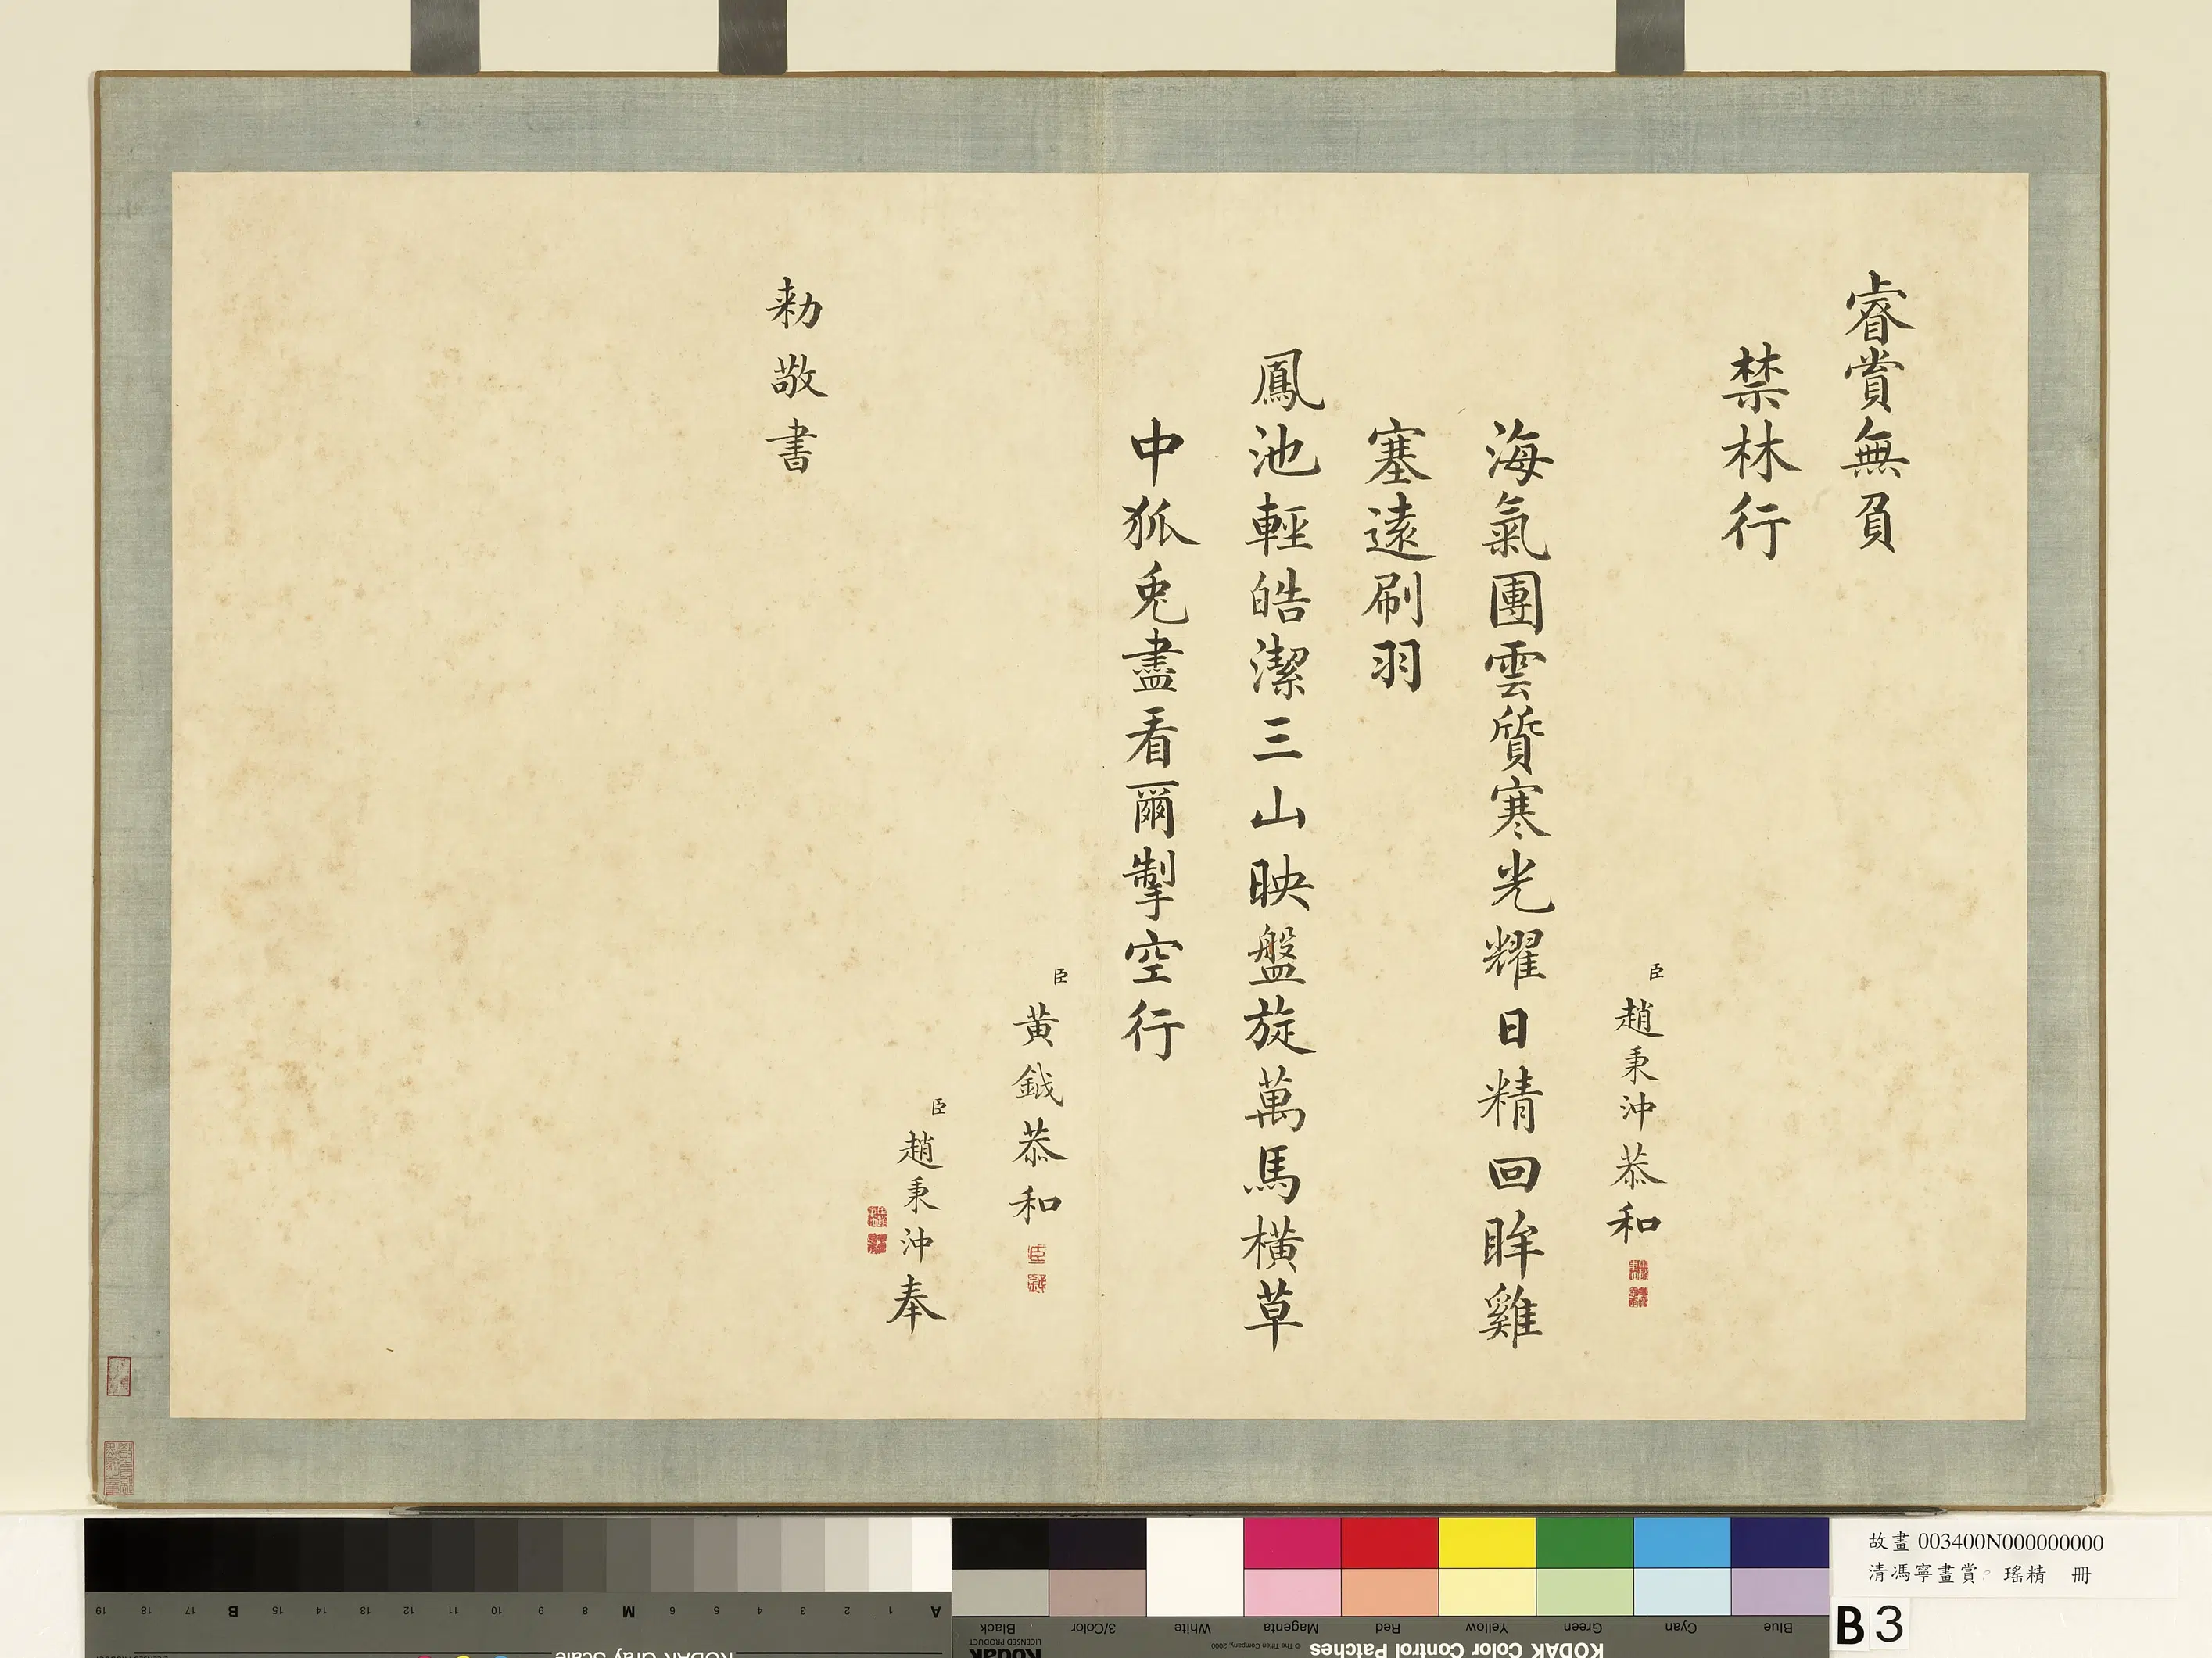 睿賞無負
禁林行
臣趙秉沖恭和
海氣團雲質寒光耀日精回眸雞
塞遠刷羽
鳳池輕皓潔三山映盤旋萬馬橫草
中狐兎盡看爾掣空行
臣黃鉞恭和
臣鉞
臣趙秉沖奉
勑敬書
故畫 003400N000000000
清馮寧畫賞 瑤精 冊
B 3
19 18 17 B 15 14 13 12 11 10 9 8 M 6 5 4 3 2 1 A
Black 3/Color White Magenta Red Yellow Green Cyan Blue
Kodak
LICENSED PRODUCT
© The Tiffen Company, 2000
KODAK Color Control Patches
KODAK Gray Scale